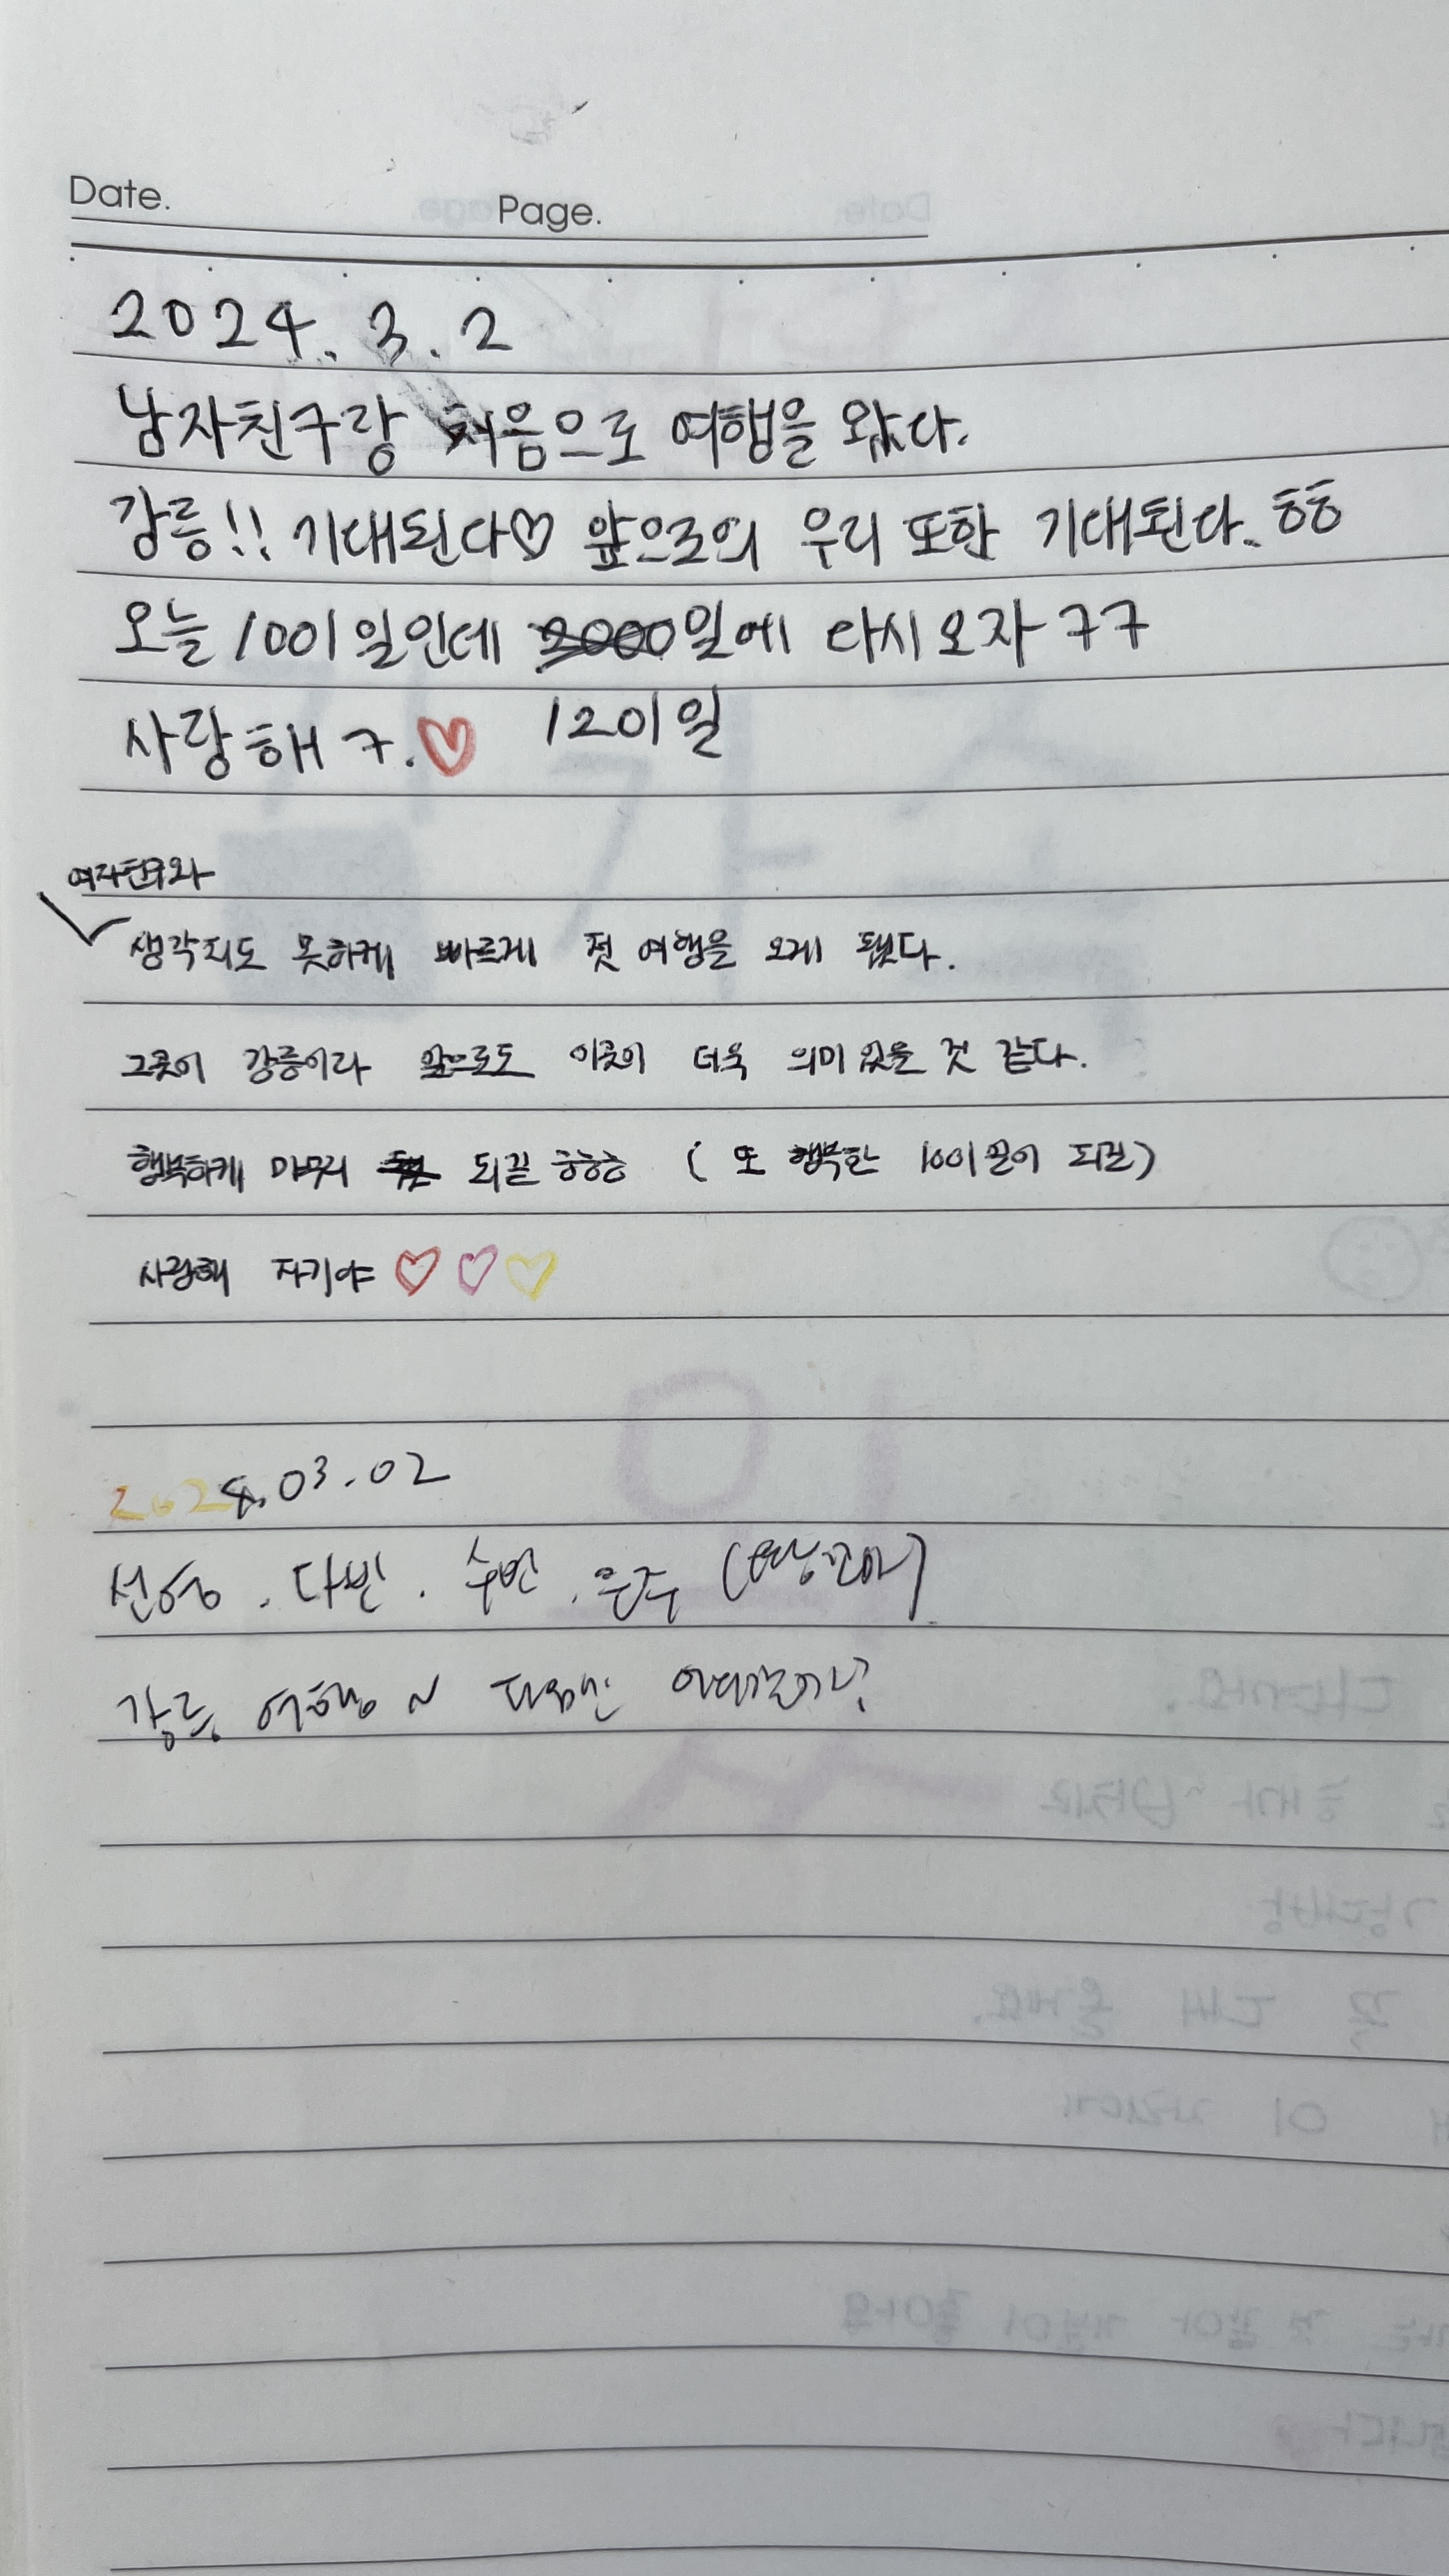 Date. Page.
2024. 3. 2
남자친구랑 처음으로 여행을 왔다.
강릉!! 기대된다♡ 앞으로의 우리 또한 기대된다. ㅎㅎ
오늘 1001일인데 2000일에 다시 오자 ㅋㅋ
사랑해 ㅋ.♡ 1201일
여자친구와
생각지도 못하게 빠르게 첫 여행을 오게 됐다.
그곳이 강릉이라 앞으로도 이곳이 더욱 의미 있을 것 같다.
행복하게 마무리 되길 ㅎㅎㅎ ( 또 행복한 1001일이 되길)
사랑해 자기야 ♡♡♡
2024.03.02
선영. 다빈. 수빈. 은주
강릉 여행 ~